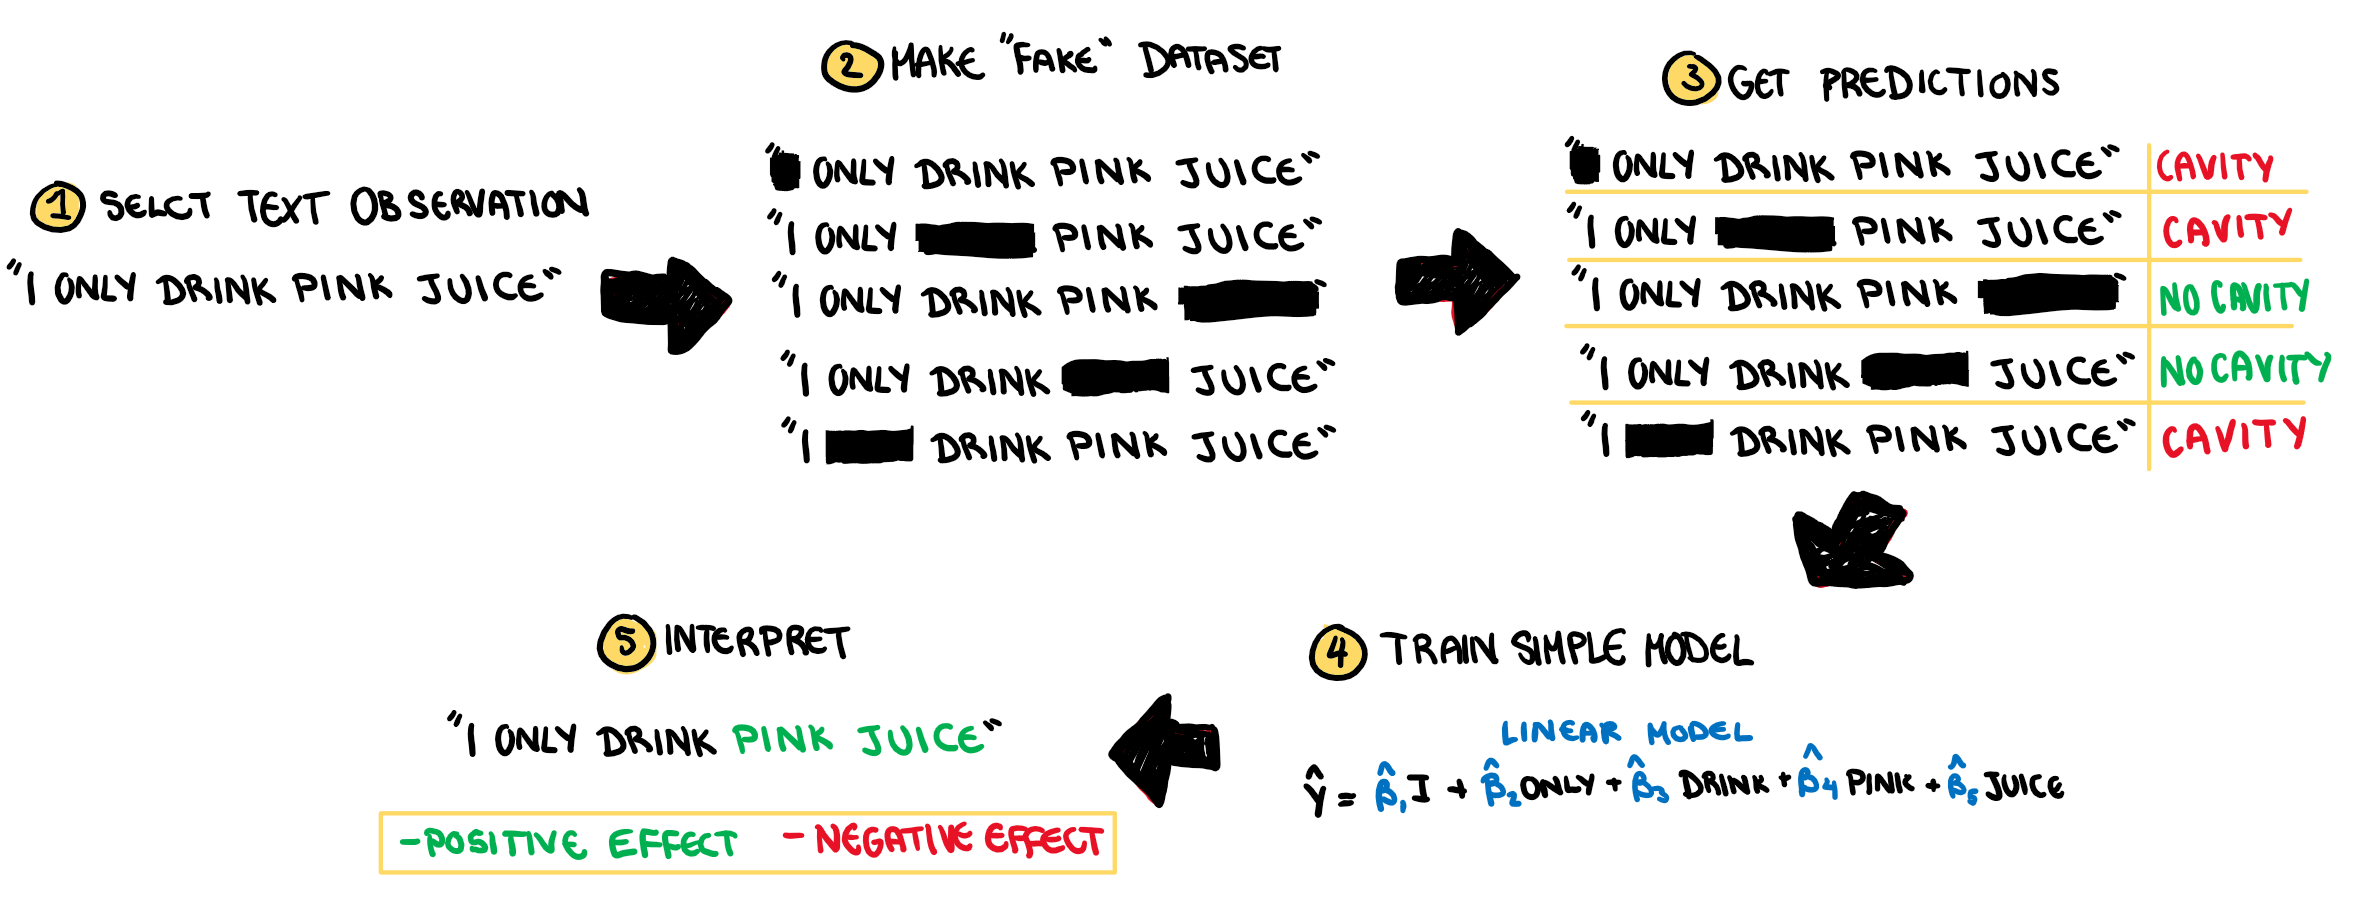 1 SELCT TEXT OBSERVATION
"I ONLY DRINK PINK JUICE"
2 MAKE "FAKE" DATASET
" ONLY DRINK PINK JUICE"
"I ONLY PINK JUICE"
"I ONLY DRINK PINK "
"I ONLY DRINK JUICE"
"I DRINK PINK JUICE"
3 GET PREDICTIONS
" ONLY DRINK PINK JUICE" CAVITY
"I ONLY PINK JUICE" CAVITY
"I ONLY DRINK PINK " NO CAVITY
"I ONLY DRINK JUICE" NO CAVITY
"I DRINK PINK JUICE" CAVITY
4 TRAIN SIMPLE MODEL
LINEAR MODEL
Ŷ = β̂₁I + β̂₂ONLY + β̂₃ DRINK + β̂₄ PINK + β̂₅ JUICE
5 INTERPRET
"I ONLY DRINK PINK JUICE"
- POSITIVE EFFECT - NEGATIVE EFFECT